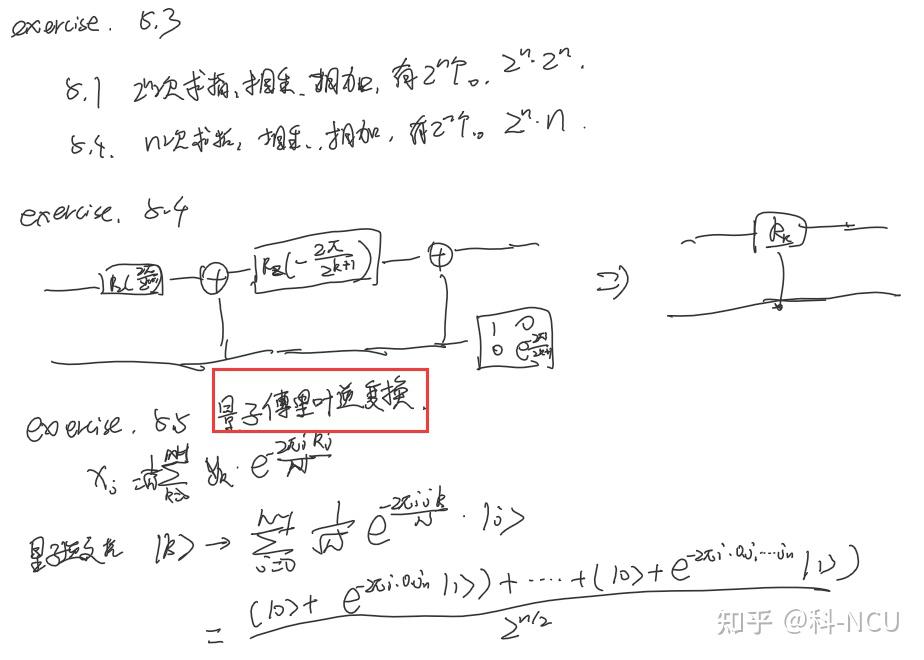 exercise. 5.3
5.1 2ⁿ次求指, 相乘, 相加, 有2ⁿ个。 2ⁿ·2ⁿ.
5.4. n次求指, 相乘, 相加, 有2ⁿ个。 2ⁿ·n.
exercise. 5.4
Rz(2π/2^(k+1)) ⊕ Rz(-2π/2^(k+1)) ⊕ ⇒ Rk
1 0
0
exercise. 5.5 量子傅里叶逆变换.
x_j = 1/√N Σ_{k=0}^{N-1} y_k · e^{-2πikj/N}
|k> → Σ_{j=0}^{N-1} 1/√N e^{-2πijk/N} · |j>
= ((|0> + e^{-2πi·0.jn} |1>) + ···· + (|0> + e^{-2πi·0.j₁···jn} |1>)) / 2^{n/2}
知乎 @科-NCU